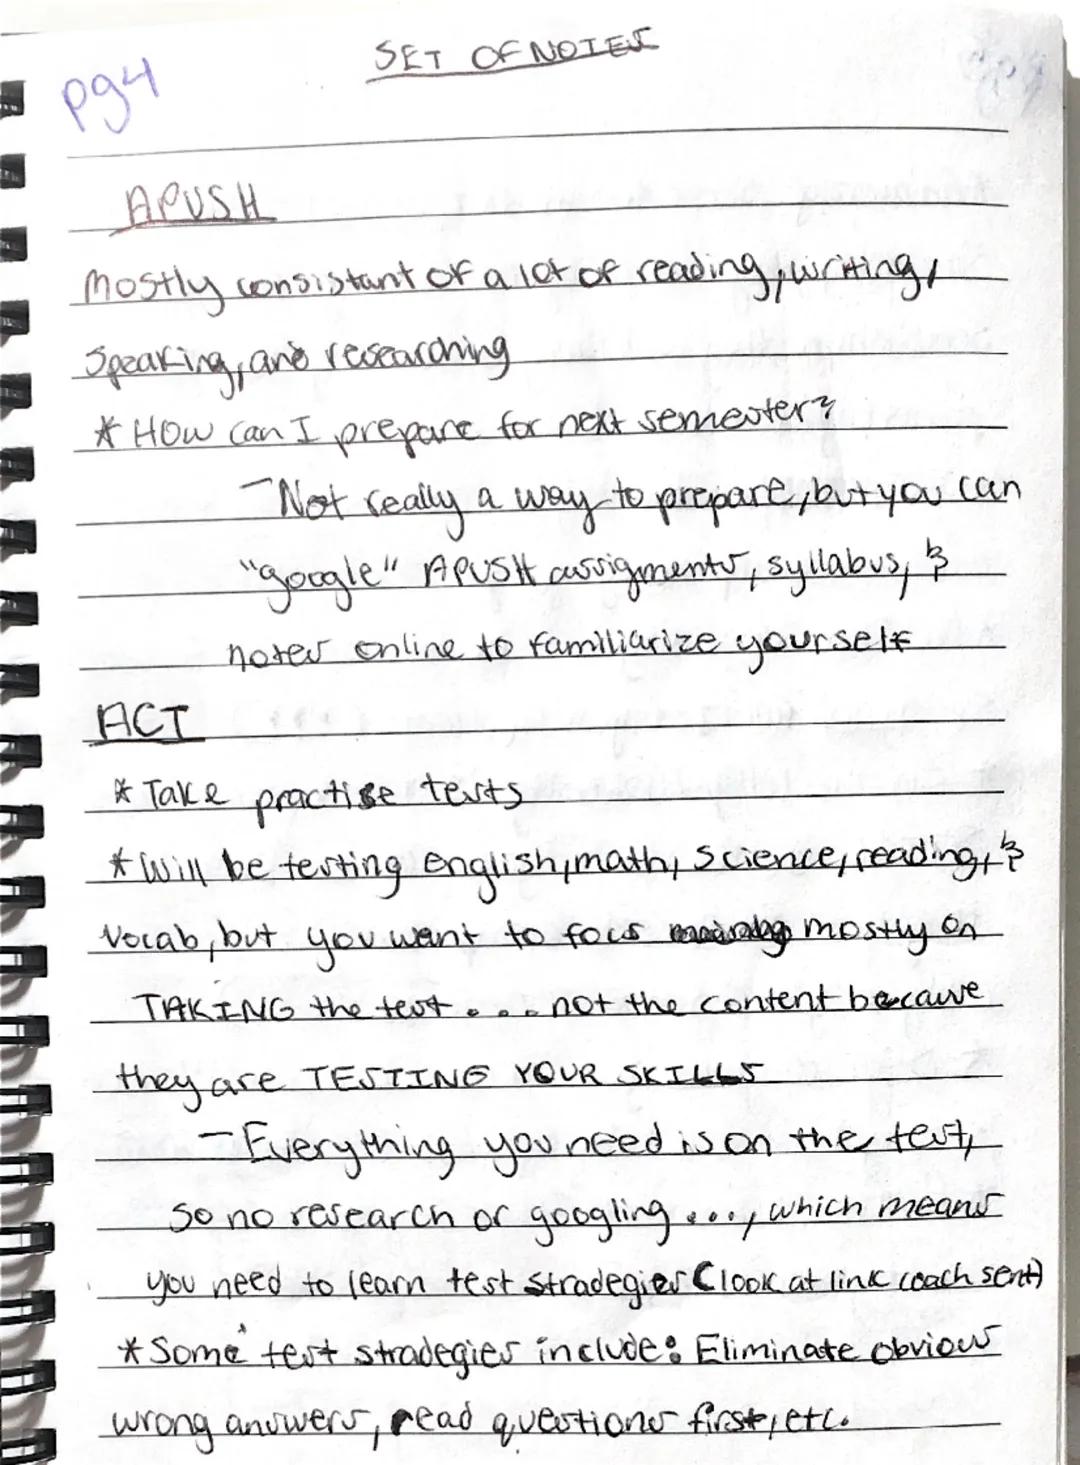 SET OF NOTES
pg4
APUSH
mostly consistant of a lot of reading, writing,
speaking, and researching
* How can I prepare for next semester?
- Not really a way to prepare, but you can
"google" APUSH assigments, syllabus, &
notes online to familiarize yourself
ACT
* Take practise tests
* Will be testing english, math, science, reading, &
vocab, but you want to focs mostly on
TAKING the test.... not the content because
they are TESTING YOUR SKILLS
- Everything you need is on the test,
so no research or googling ..., which means
you need to learn test stradegies (look at link coach sent)
* Some test stradegies include: Eliminate obvious
wrong answers, read questions first, etc.